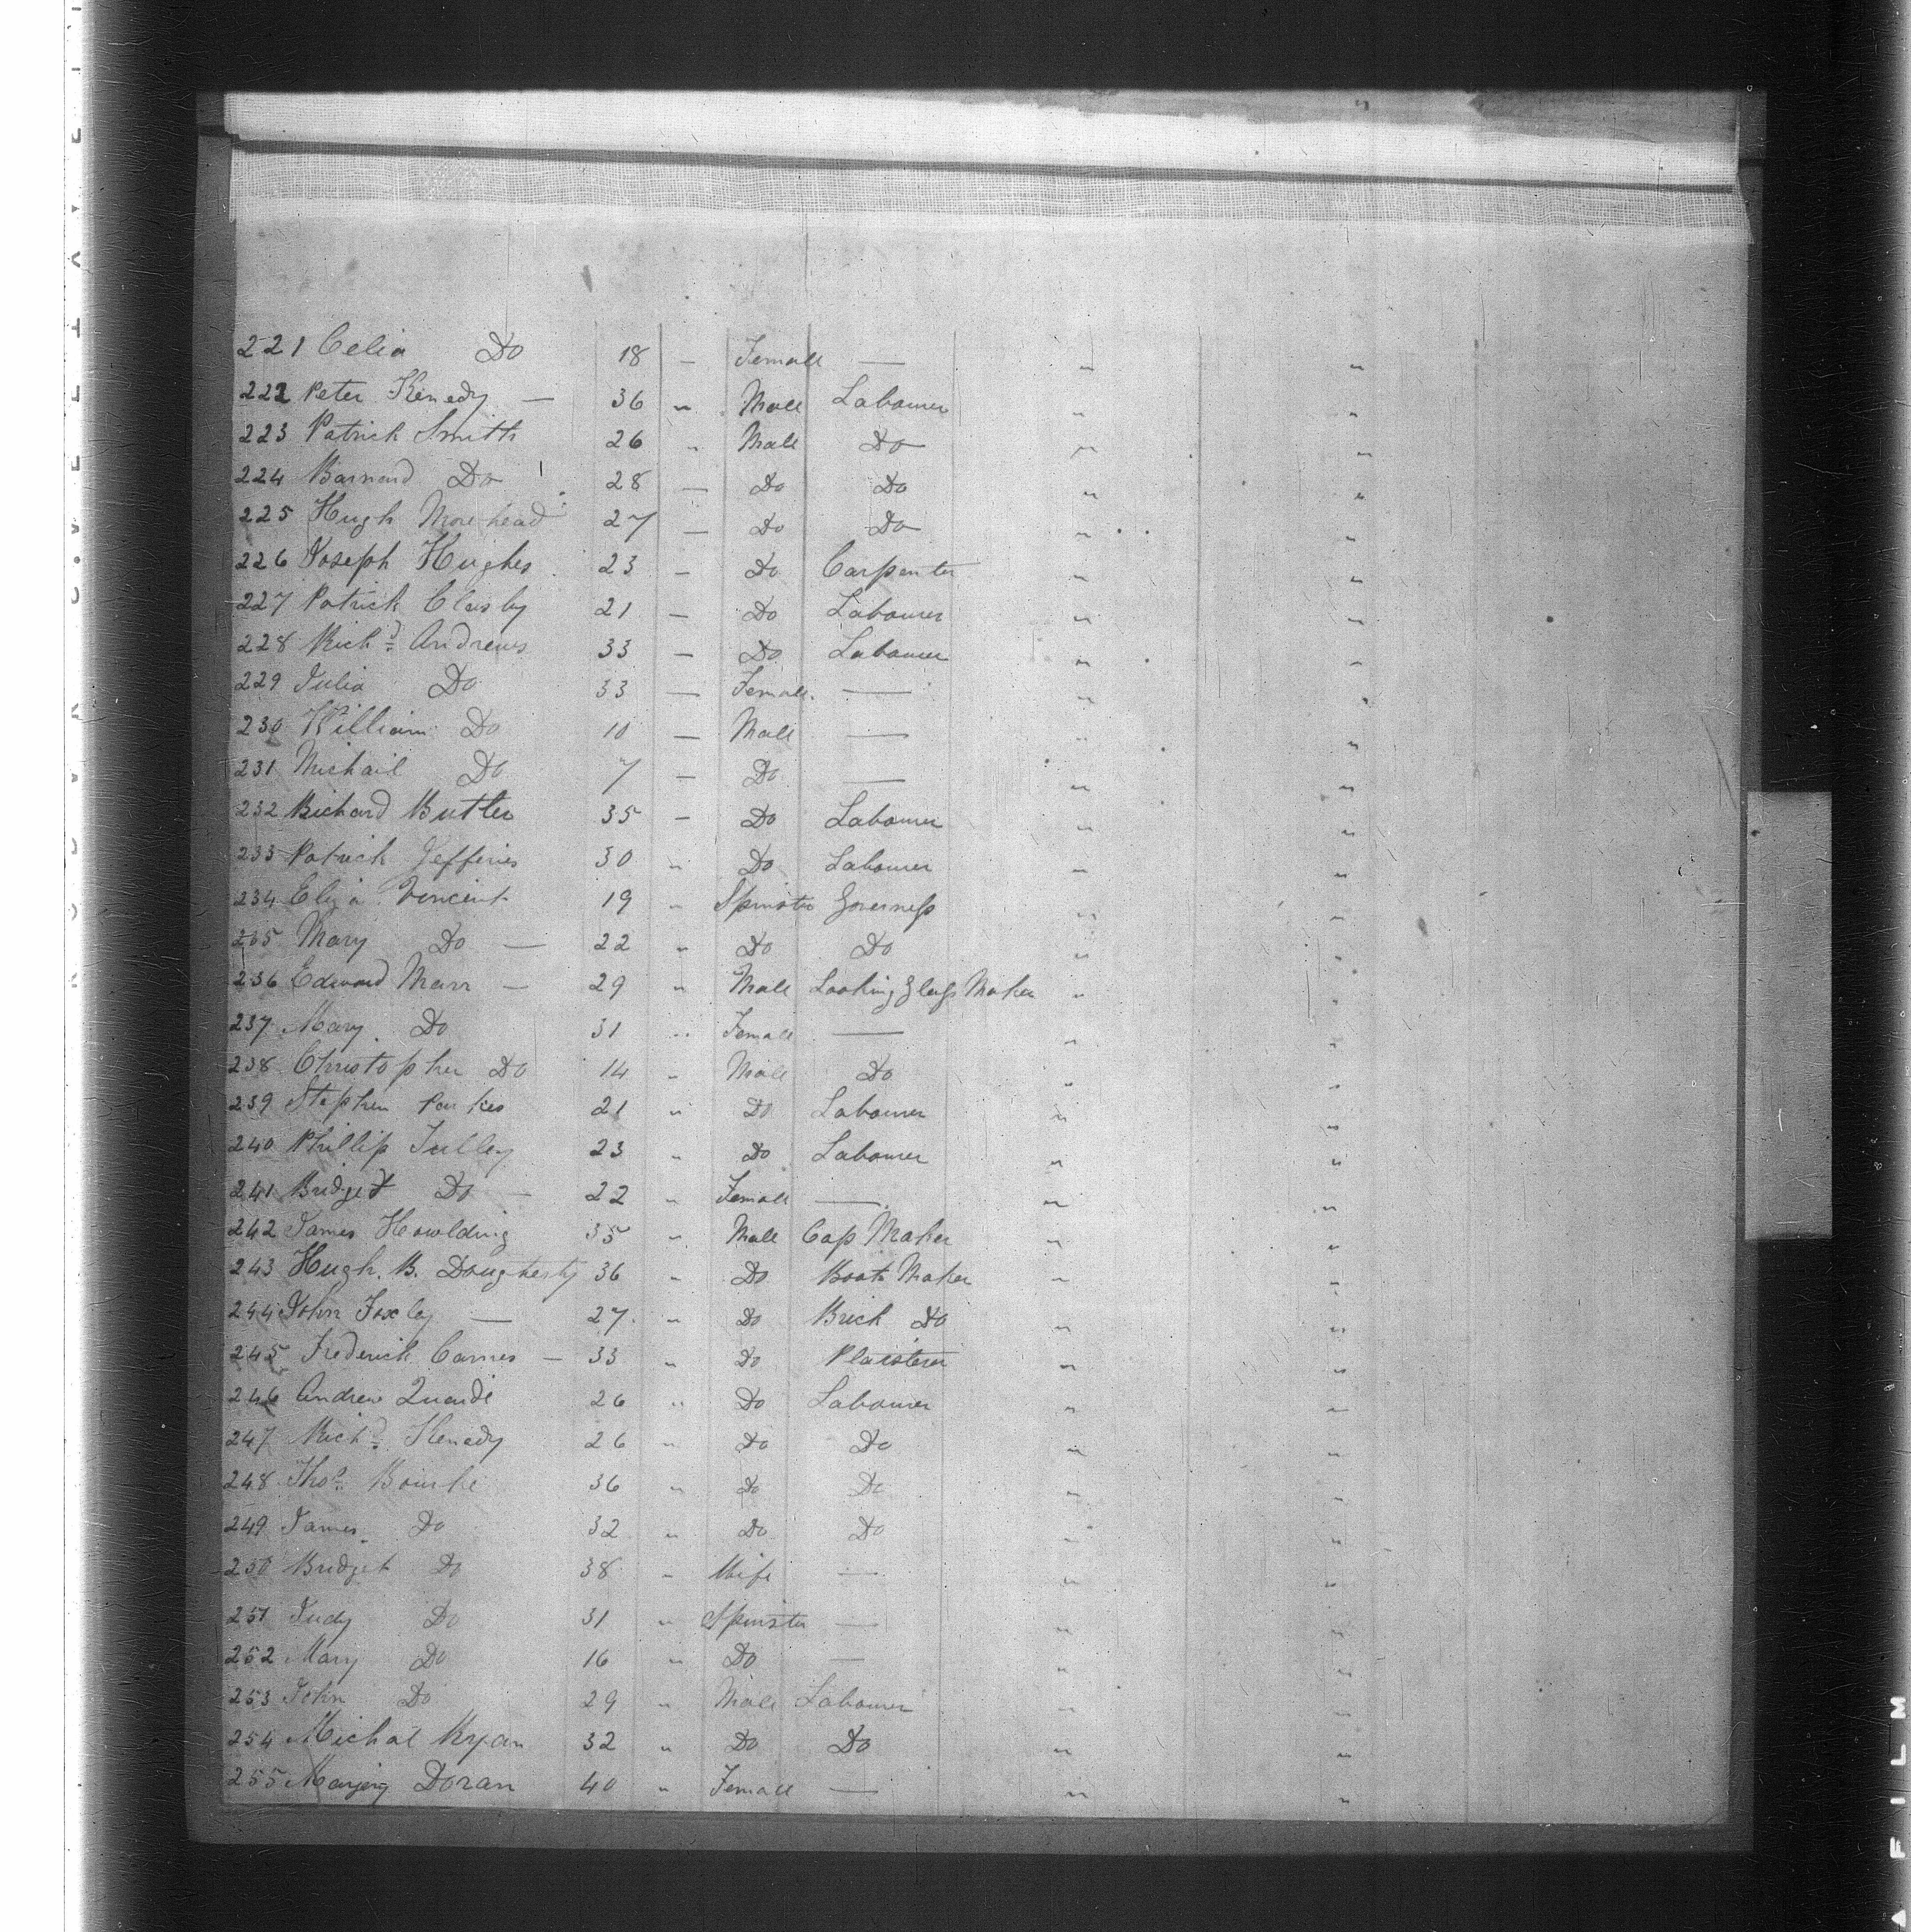 221 Celia Do 18 — Female — " "
222 Peter Kenedy — 36 " Male Labourer " "
223 Patrick Smith 26 " Male Do " "
224 Barnard Do 28 — Do Do " "
225 Hugh Morehead 27 — Do Do " "
226 Joseph Hughes 23 — Do Carpenter " "
227 Patrick Clusby 21 — Do Labourer " "
228 Richd Andrews 33 — Do Labourer " "
229 Julia Do 33 — Female — " "
230 William Do 10 — Male — " "
231 Michail Do 7 — Do — " "
232 Richard Butler 35 — Do Labourer " "
233 Patrick Jefferies 30 " Do Labourer " "
234 Eliza Vincent 19 " Spinster Governess " "
235 Mary Do — 22 " Do Do " "
236 Edward Marr — 29 " Male Looking Glass Maker " "
237 Mary Do 31 " Female — " "
238 Christopher Do 14 " Male Do " "
239 Stephen 21 " Do Labourer " "
240 Phillip Tulley 23 " Do Labourer " "
241 Bridget Do — 22 " Female — " "
242 James Howlding 35 " Male Cap Maker " "
243 Hugh B. Dougherty 36 " Do Boot Maker " "
244 John Foxley — 27 " Do Brick Do " "
245 Frederick Carnes — 33 " Do Plaisterer " "
246 Andrew 26 " Do Labourer " "
247 Richd Kenedy 26 " Do Do " "
248 Thos Bourke 36 " Do Do " "
249 James Do 32 " Do Do " "
250 Bridget Do 38 " Wife — " "
251 Judy Do 31 " Spinster — " "
252 Mary Do 16 " Do — " "
253 John Do 29 " Male Labourer " "
254 Michal Ryan 32 " Do Do " "
255 Doran 40 " Female — " "
FILM